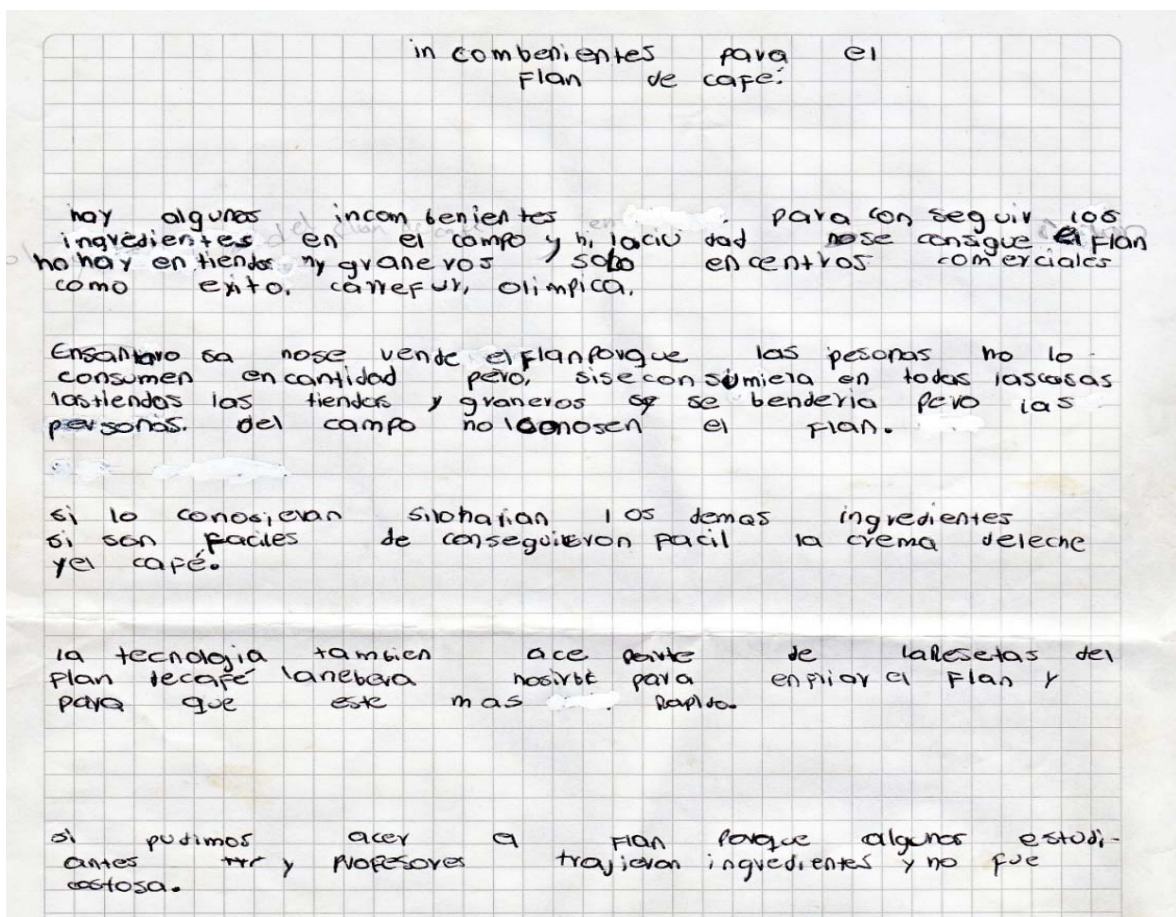 in combenientes para el
Flan de café.
hay algunos incombenientes para conseguir los
ingredientes en el campo y ni laciu dad nose consigue el Flan
no hay en tiendas ny graneros y solo encentros comerciales
como exito, carrefur, olimpica.
nose vende el flanporque las pesonas no lo
consumen encantidad pero, siseconsumiera en todas lascosas
lastiendas las tiendas y graneros se benderia pero las
personas. del campo no conosen el Flan.
si lo conosieran siloharian los demas ingredientes
si son faciles de conseguieron facil la crema deleche
yel café.
la tecnologia tambien ace parte de laResetas del
Flan decafé lanebera nosirbe para enfriar el Flan y
para que este mas Rapido.
si pudimos acer el Flan porque algunos estudi-
antes y profesores trajieron ingredientes y no fue
costosa.